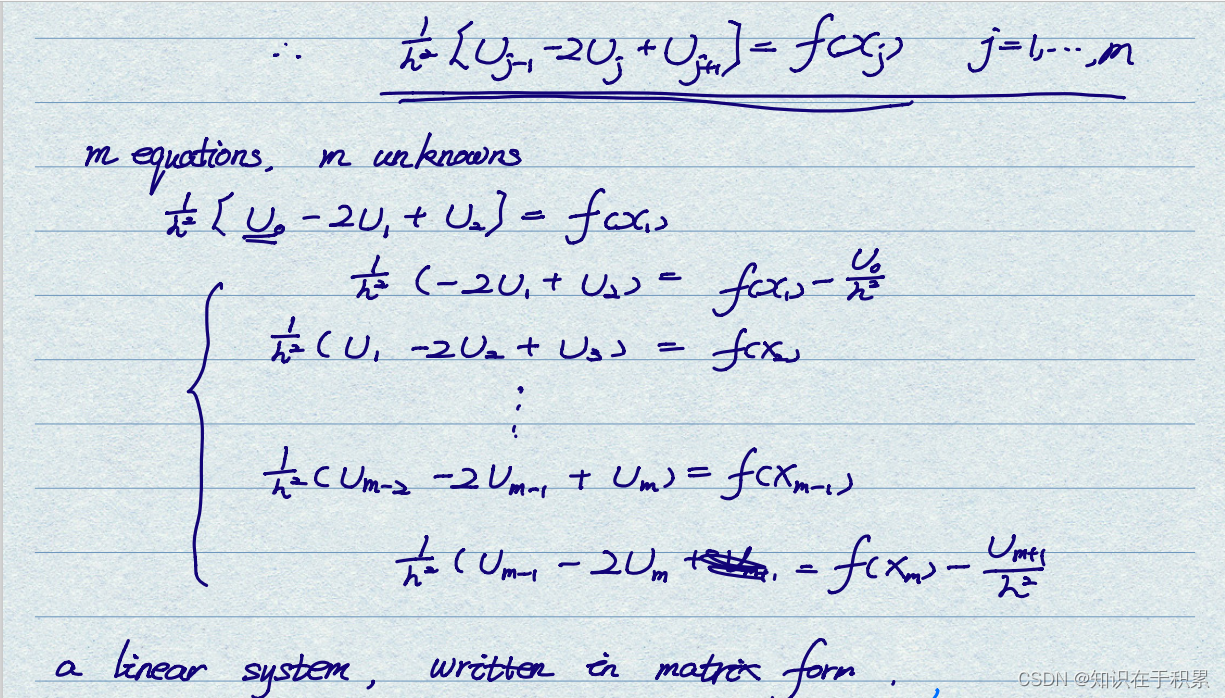 ∴ 1/h² [U_{j-1} - 2U_j + U_{j+1}] = f(x_j) j=1,⋯,m
m equations, m unknowns
1/h² [U_0 - 2U_1 + U_2] = f(x_1)
1/h² (-2U_1 + U_2) = f(x_1) - U_0/h²
1/h² (U_1 - 2U_2 + U_3) = f(x_2)
⋮
1/h² (U_{m-2} - 2U_{m-1} + U_m) = f(x_{m-1})
1/h² (U_{m-1} - 2U_m = f(x_m) - U_{m+1}/h²
a linear system, written in matrix form.
CSDN @知识在手积累